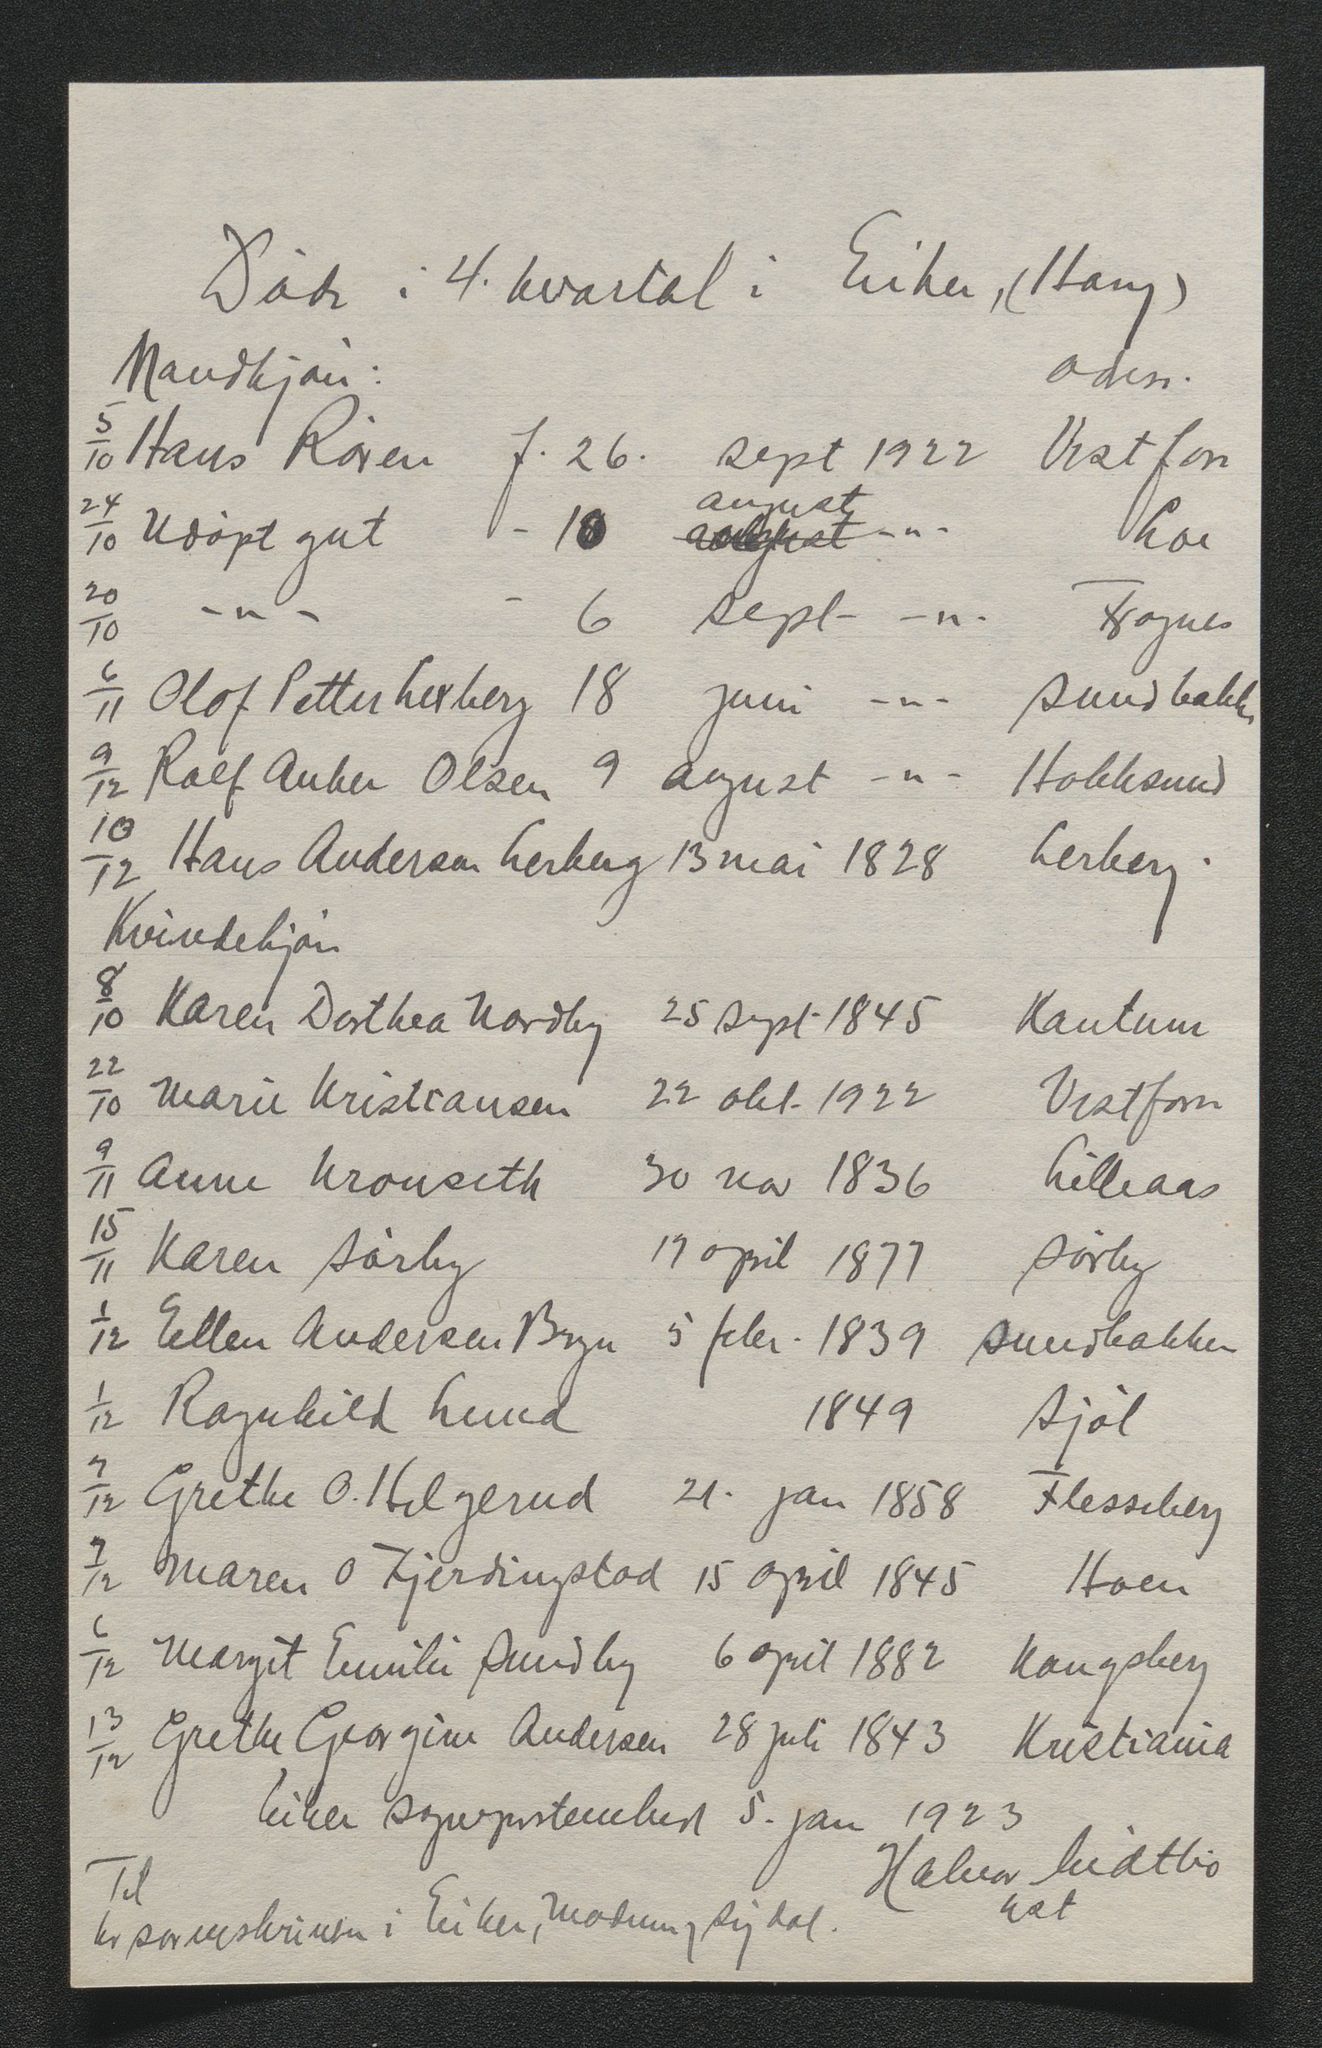 Döde i 4. kvartal i Eiker, (Haug)
Mandkjön: adress.
5/10 Hans Rören f. 26. sept 1922 Vestfoss
24/10 Udöpt gut - 10 august -"- Loe
20/10 -"- - 6 sept- -"- Fragnes
6/11 Olof Petter Lerberg 18 juni -"- Sundbakken
9/12 Rolf Anker Olsen 9 august -"- Hokksund
10/12 Hans Andersen Lerberg 13 mai 1828 Lerberg.
Kvindekjön
8/10 Karen Dorthea Nordby 25 sept- 1845 Kantum
22/10 Marie Kristiansen 22 okt. 1922 Vestfoss
9/11 Anne Kronseth 30 nov 1836 Lilleaas
15/11 Karen Sörby 17 april 1877 Sörby
1/12 Ellen Andersen Bryn 5 febr. 1839 Sundbakken
1/12 Ragnhild Lund 1849 Sjöl
7/12 Grethe O. Helgerud 21. jan 1858 Flesseberg
7/12 Maren O Fjerdingstad 15 april 1845 Hoen
6/12 Margit Emilie Sundby 6 april 1882 Kongsberg
13/12 Grethe Georgine Andersen 28 juli 1843 Kristiania
Eiker 5. jan 1923
Halvor
Til
hr sorenskriveren i Eiker, Modum og Sigdal.